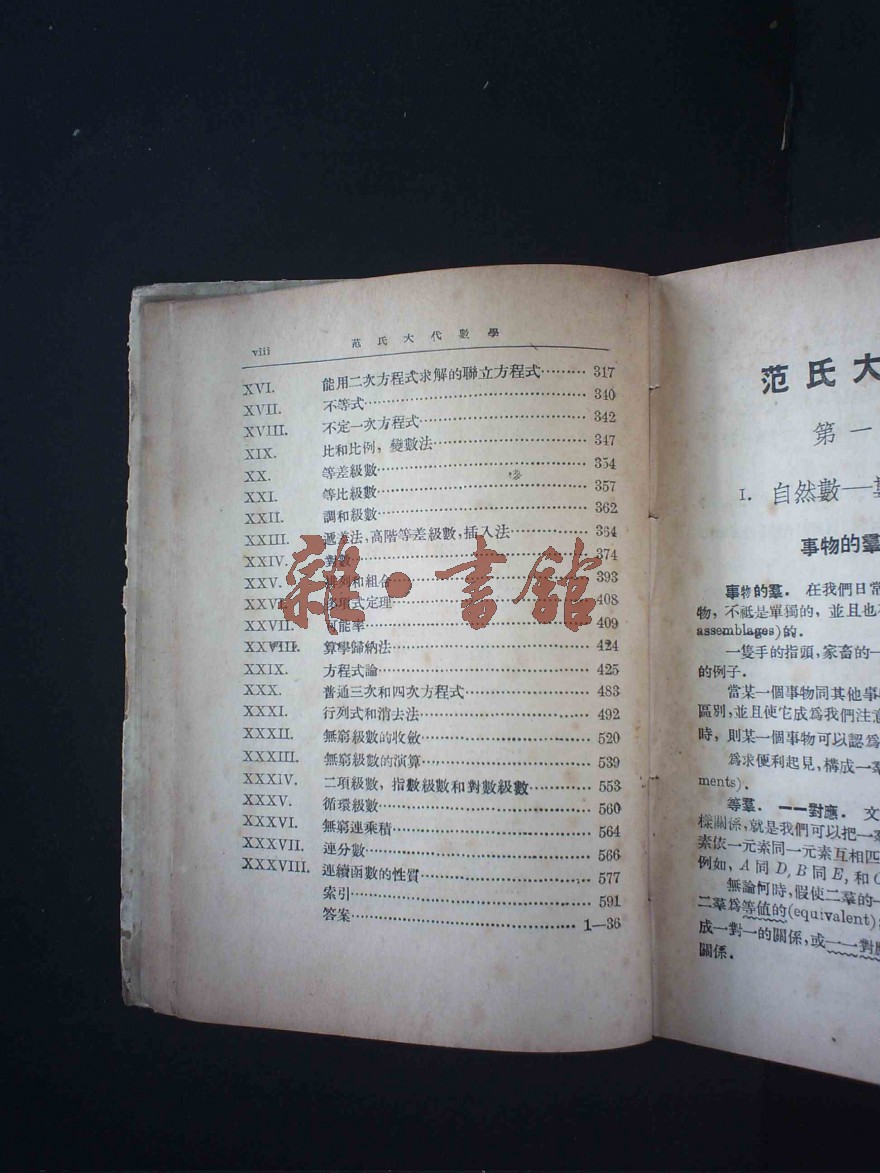 viii 范氏大代數學
XVI. 能用二次方程式求解的聯立方程式……… 317
XVII. 不等式……… 340
XVIII. 不定一次方程式……… 342
XIX. 比和比例，變數法……… 347
XX. 等差級數……… 354
XXI. 等比級數……… 357
XXII. 調和級數……… 362
XXIII. 遞差法，高階等差級數，插入法……… 364
XXIV. 對數……… 374
XXV. 排列和組合……… 393
XXVI. 多項式定理……… 408
XXVII. 可能率……… 409
XXVIII. 算學歸納法……… 424
XXIX. 方程式論……… 425
XXX. 普通三次和四次方程式……… 483
XXXI. 行列式和消去法……… 492
XXXII. 無窮級數的收斂……… 520
XXXIII. 無窮級數的演算……… 539
XXXIV. 二項級數，指數級數和對數級數……… 553
XXXV. 循環級數……… 560
XXXVI. 無窮連乘積……… 564
XXXVII. 連分數……… 566
XXXVIII. 連續函數的性質……… 577
索引……… 591
答案……… 1—36
雜·書館
范氏大
第一
I. 自然數—
事物的羣
事物的羣． 在我們日常
物，不祗是單獨的，並且也
assemblages)的．
一隻手的指頭，家畜的一
的例子．
當某一個事物同其他事
區別，並且使它成爲我們注意
時，則某一個事物可以認爲
爲求便利起見，構成一
ments).
等羣． 一一對應． 文
樣關係，就是我們可以把一
素依一元素同一元素互相匹
例如，A 同 D, B 同 E, 和
無論何時，假使二羣的一
二羣爲等値的(equivalent)
成一對一的關係，或一一對應
關係．